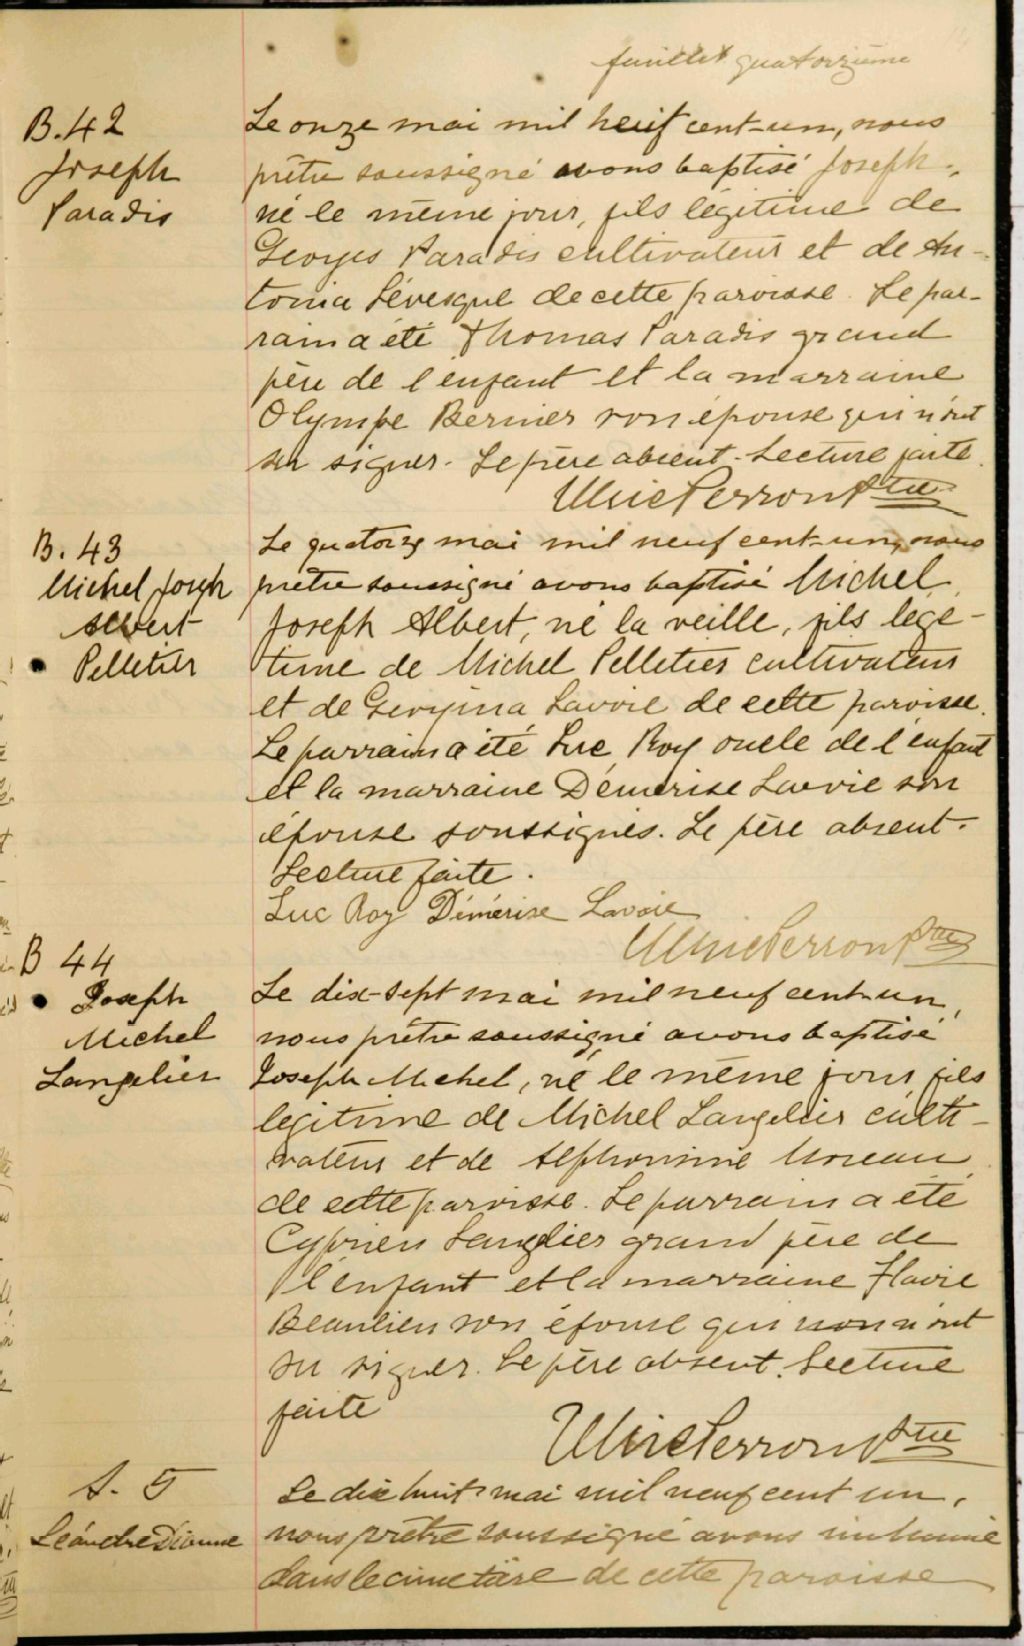 feuillet quatorzième
B. 42
Joseph
Paradis
Le onze mai mil neuf cent-un, nous
prêtre soussigné avons baptisé Joseph,
né le même jour, fils légitime de
Georges Paradis cultivateur et de An-
tonia Lévesque de cette paroisse. Le par-
rain a été Thomas Paradis grand
père de l'enfant et la marraine
Olympe Bernier son épouse qui n'ont
su signer. Le père absent. Lecture faite.
Ulric Perron Ptre
B. 43
Michel Joseph
Albert
Pelletier
Le quatorze mai mil neuf cent-un, nous
prêtre soussigné avons baptisé Michel
Joseph Albert, né la veille, fils légi-
time de Michel Pelletier cultivateur
et de Georgina Lavoie de cette paroisse.
Le parrain a été Luc Roy oncle de l'enfant
et la marraine Démerise Lavoie son
épouse soussignés. Le père absent.
Lecture faite.
Luc Roy Démérise Lavoie
Ulric Perron Ptre
B 44
Joseph
Michel
Langelier
Le dix-sept mai mil neuf cent-un,
nous prêtre soussigné avons baptisé
Joseph Michel, né le même jour, fils
légitime de Michel Langelier culti-
vateur et de Alphonsine Moreau
de cette paroisse. Le parrain a été
Cyprien Langelier grand père de
l'enfant et la marraine Flavie
Beaulieu son épouse qui n'ont
su signer. Le père absent. Lecture
faite
Ulric Perron Ptre
S. 5
Léandre Dionne
Le dix huit mai mil neuf cent un,
nous prêtre soussigné avons inhumé
dans le cimetière de cette paroisse